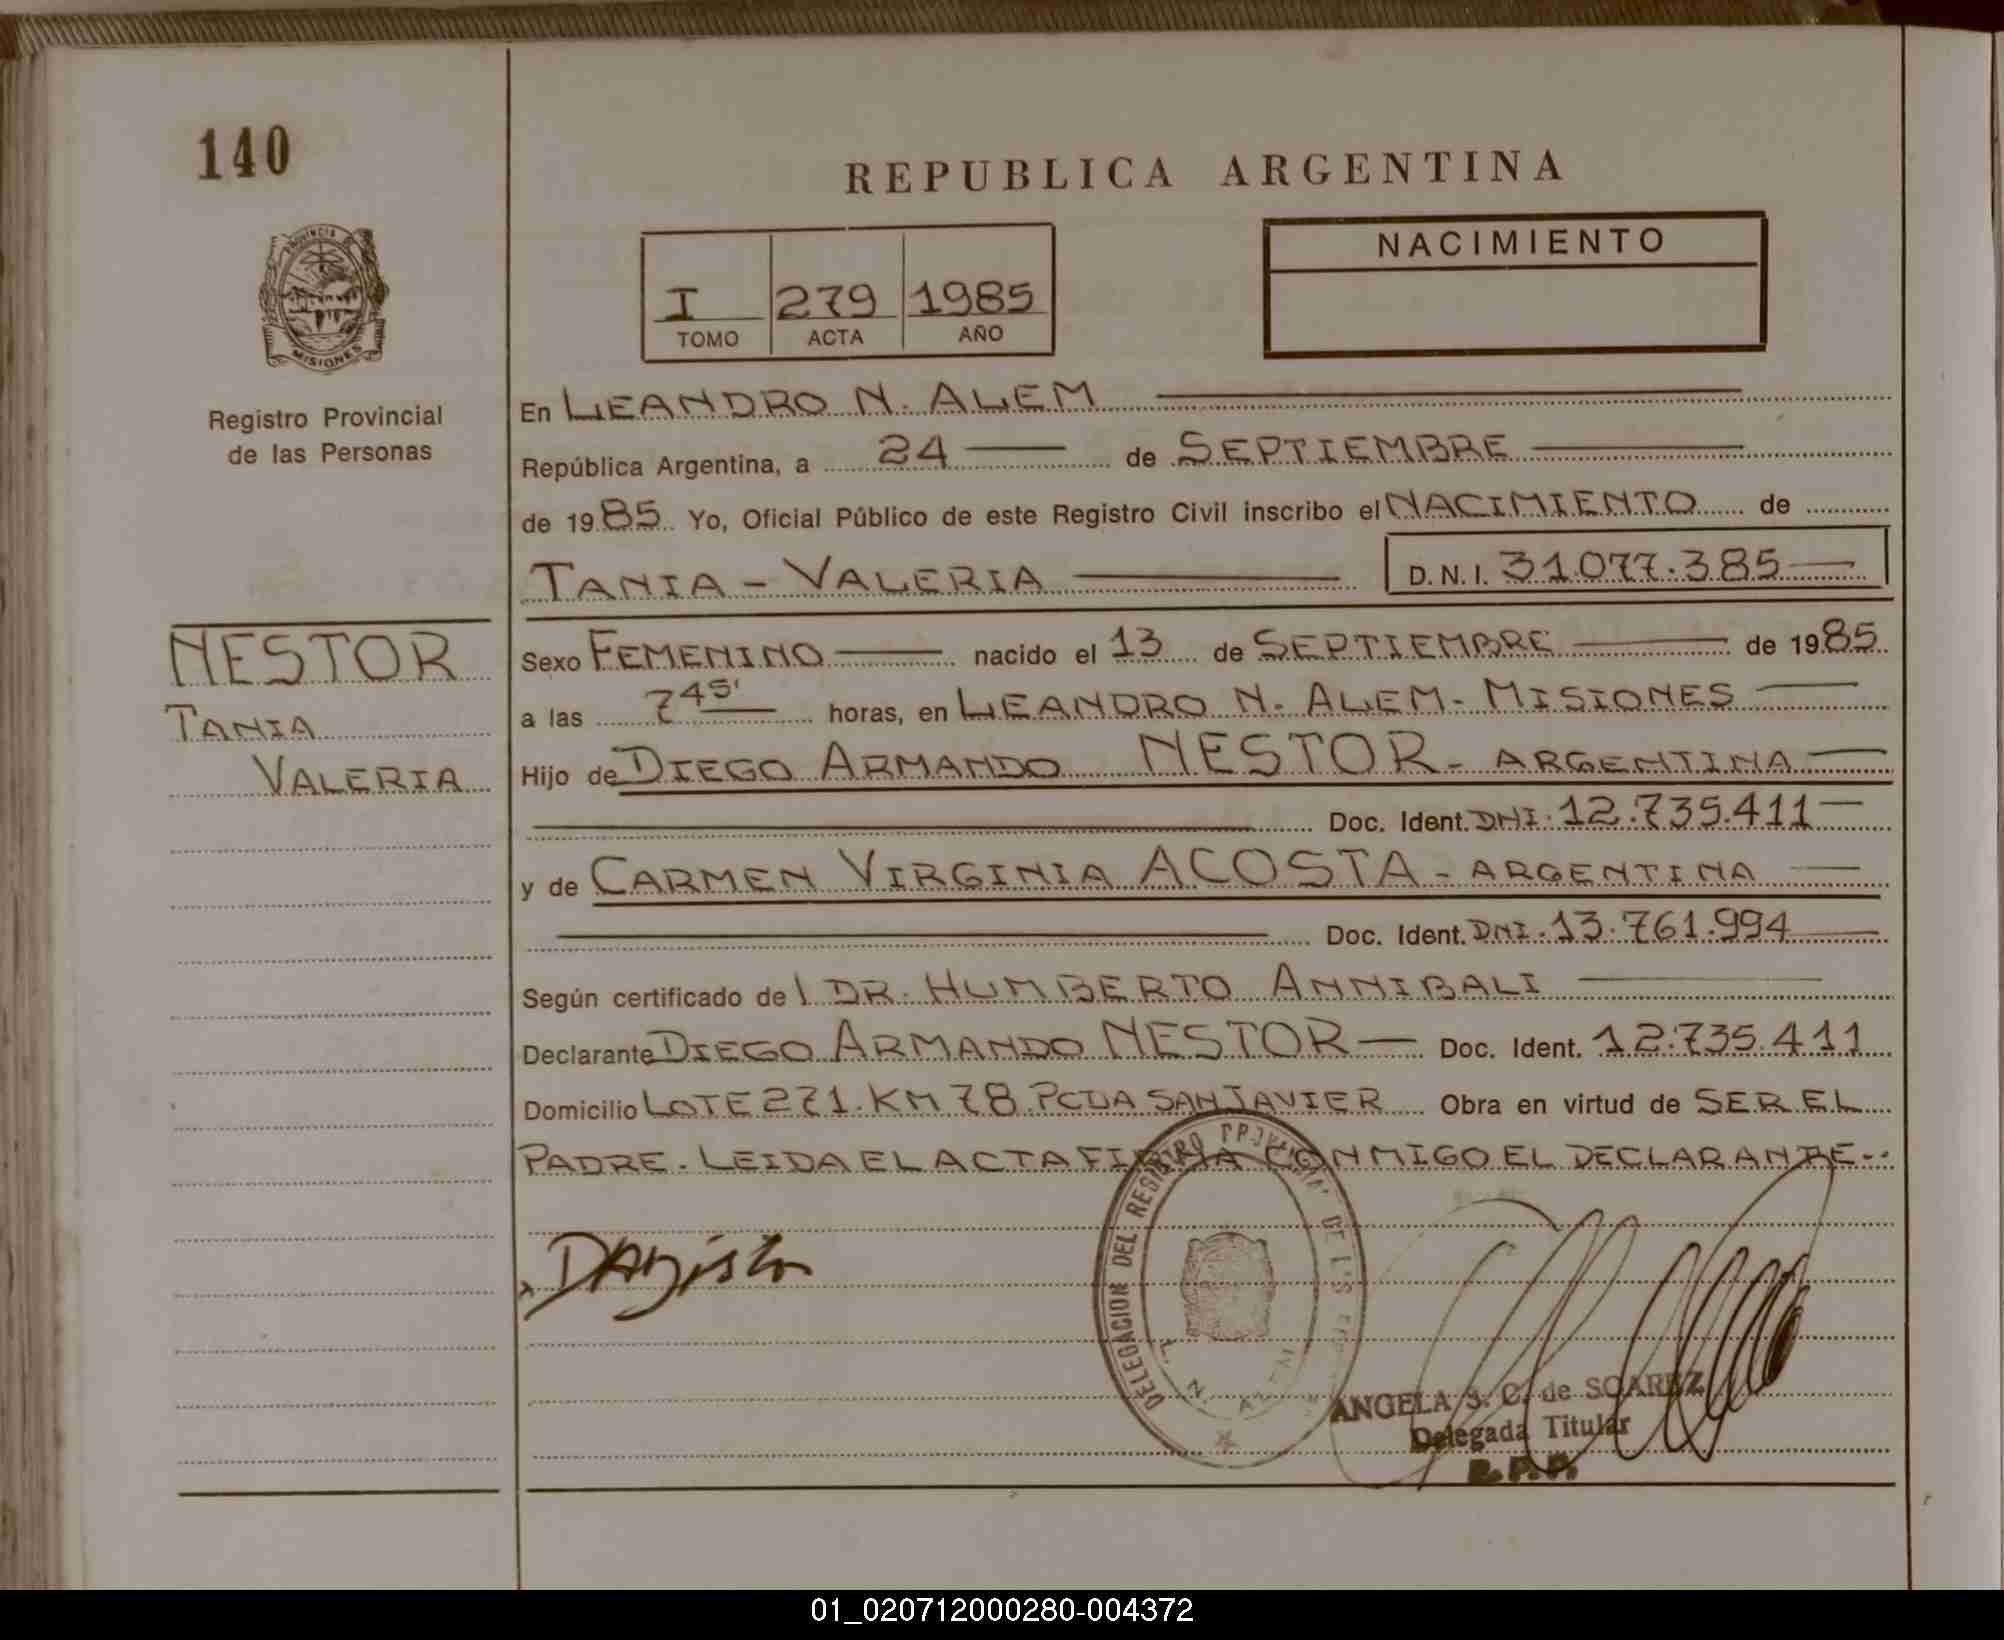 140
REPUBLICA ARGENTINA
PROVINCIA
MISIONES
Registro Provincial
de las Personas
I 279 1985
TOMO ACTA AÑO
NACIMIENTO
En LEANDRO N. ALEM
República Argentina, a 24 de SEPTIEMBRE
de 1985 Yo, Oficial Público de este Registro Civil inscribo el NACIMIENTO de
TANIA - VALERIA D.N.I. 31.077.385
NESTOR
TANIA
VALERIA
Sexo FEMENINO nacido el 13 de SEPTIEMBRE de 1985
a las 7 45' horas, en LEANDRO N. ALEM - MISIONES
Hijo de DIEGO ARMANDO NESTOR - ARGENTINA
Doc. Ident. DNI. 12.735.411
y de CARMEN VIRGINIA ACOSTA - ARGENTINA
Doc. Ident. DNI. 13.761.994
Según certificado de l DR. HUMBERTO ANNIBALI
Declarante DIEGO ARMANDO NESTOR Doc. Ident. 12.735.411
Domicilio LOTE 271. KM 78 PCDA SAN JAVIER Obra en virtud de SER EL
PADRE. LEIDA EL ACTA FIRMA CONMIGO EL DECLARANTE..
DELEGACION DEL REGISTRO PROVINCIAL DE LAS
L. N. ALEM
ANGELA S. C. de SOAREZ
Delegada Titular
R. P. P.
01_020712000280-004372